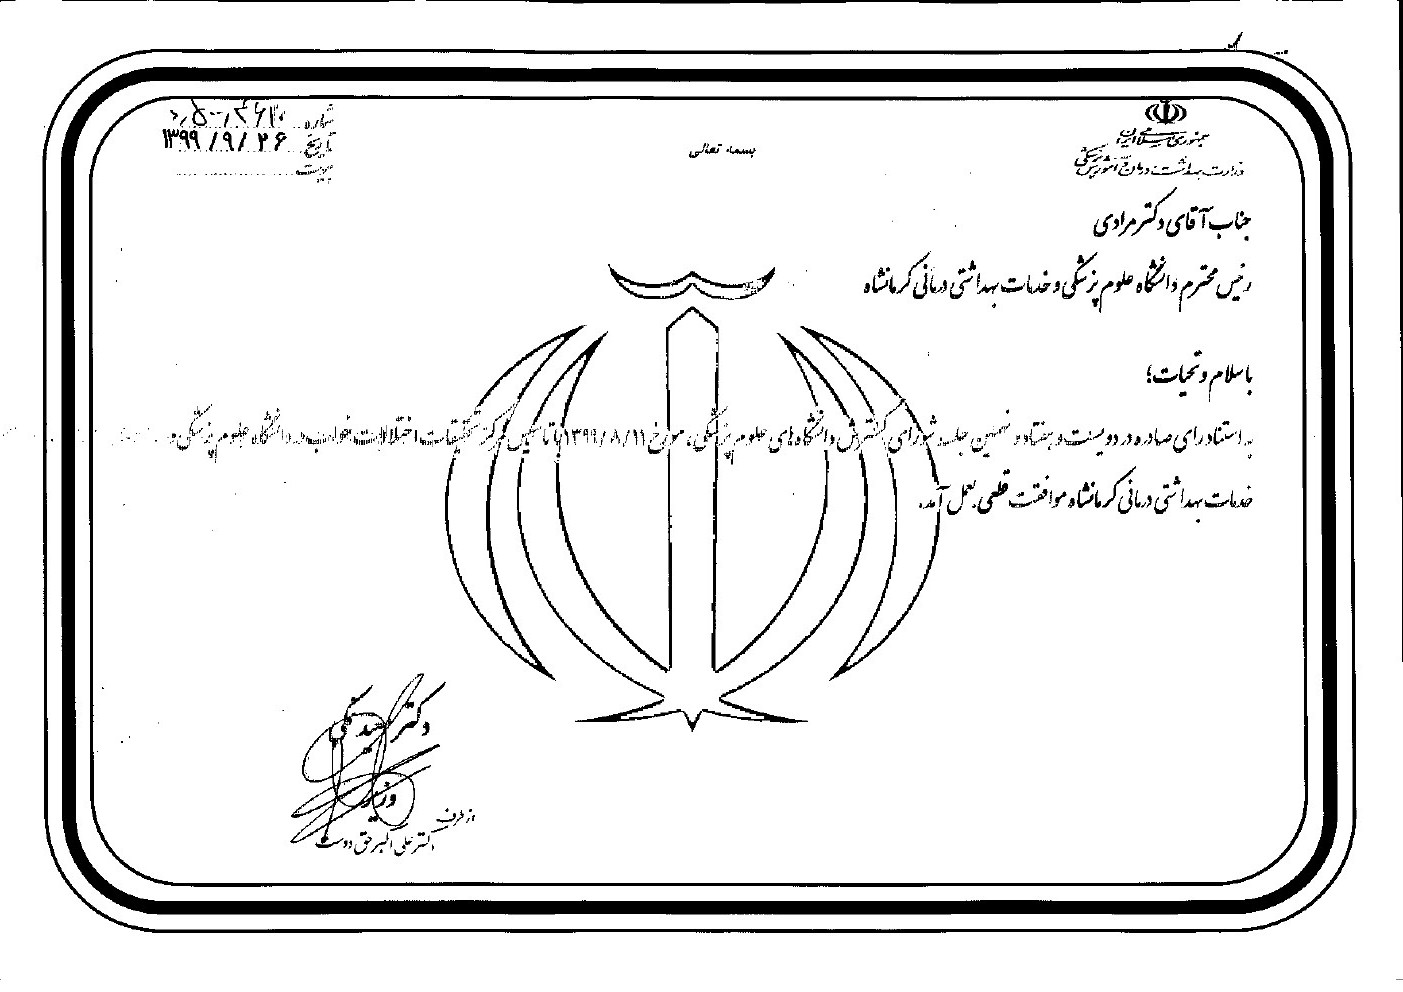 جمهوری اسلامی ایران
وزارت بهداشت، درمان و آموزش پزشکی
بسمه تعالی
شماره
تاریخ ۱۳۹۹/۹/۲۶
پیوست
جناب آقای دکتر مرادی
رئیس محترم دانشگاه علوم پزشکی و خدمات بهداشتی درمانی کرمانشاه
با سلام و تحیات؛
به استناد رای صادره در دویست و هفتاد و نهمین جلسه شورای گسترش دانشگاه های علوم پزشکی، مورخ ۱۳۹۹/۸/۱۱ با تاسیس مرکز تحقیقات اختلالات خواب در دانشگاه علوم پزشکی و
خدمات بهداشتی درمانی کرمانشاه موافقت قطعی بعمل آمد.
دکتر سعید نمکی
وزیر
از طرف
دکتر علی اکبر حق دوست